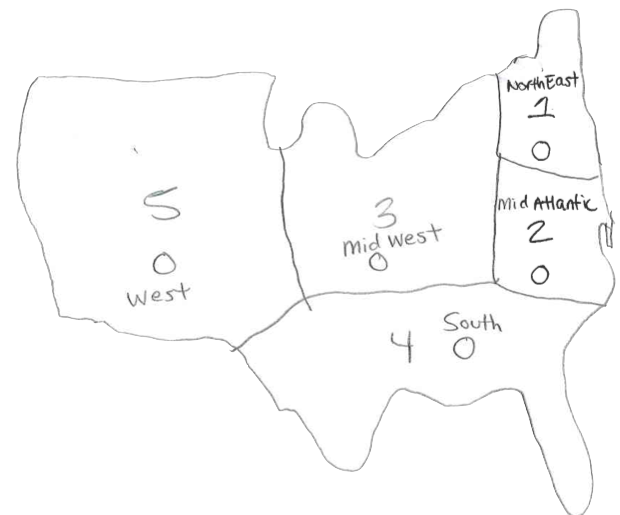 NorthEast
1
0
Mid Atlantic
2
0
3
mid west
0
5
0
west
South
4 0